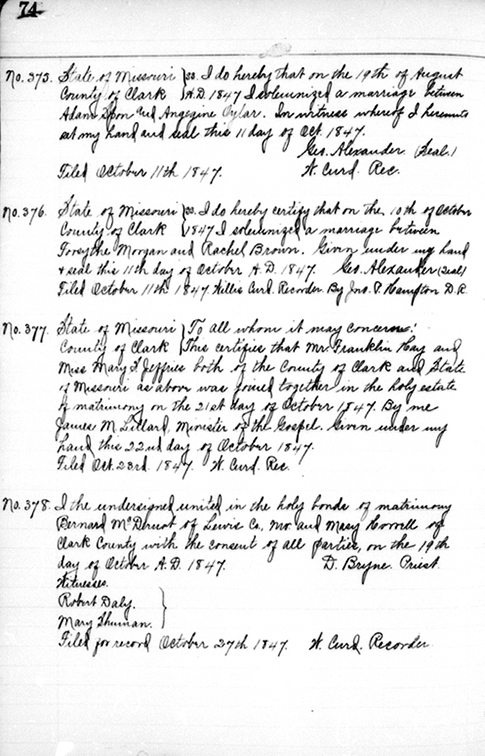 74
No. 373. State of Missouri } ss. I do hereby that on the 19th of August
County of Clark } A.D. 1847 I solemnized a marriage between
Adam Spon and Angegine Oylar. In witness whereof I hereunto
set my hand and seal this 11 day of Oct 1847.
Geo. Alexander. (Seal.)
Filed October 11th 1847. W. Curd. Rec.
No. 376. State of Missouri } ss. I do hereby certify that on the 10th of October
County of Clark } 1847 I solemnized a marriage between
Forsythe Morgan and Rachel Brown. Given under my hand
& seal this 11th day of October A.D. 1847. Geo. Alexander (Seal)
Filed October 11th 1847 Willis Curd. Recorder By Jno. P. Hampton D.R.
No. 377. State of Missouri } To all whom it may concern:
County of Clark } This certifies that Mr. Franklin Hay and
Miss Mary A Jeffries both of the County of Clark and State
of Missouri as above was joined together in the holy estate
of matrimony on the 21st day of October 1847. By me
James M Lillard Minister of the Gospel. Given under my
hand this 22nd day of October 1847.
Filed Oct. 23rd. 1847. W. Curd. Rec.
No. 378. I the undersigned united in the holy bonds of matrimony
Bernard McDermot of Lewis Co, Mo. and Mary
Clark County with the consent of all parties, on the 19th
day of October A.D. 1847. D. Bryne. Priest.
Witnesses.
Robert Daly. }
Mary Shuman. }
Filed for record October 27th 1847. W. Curd. Recorder.